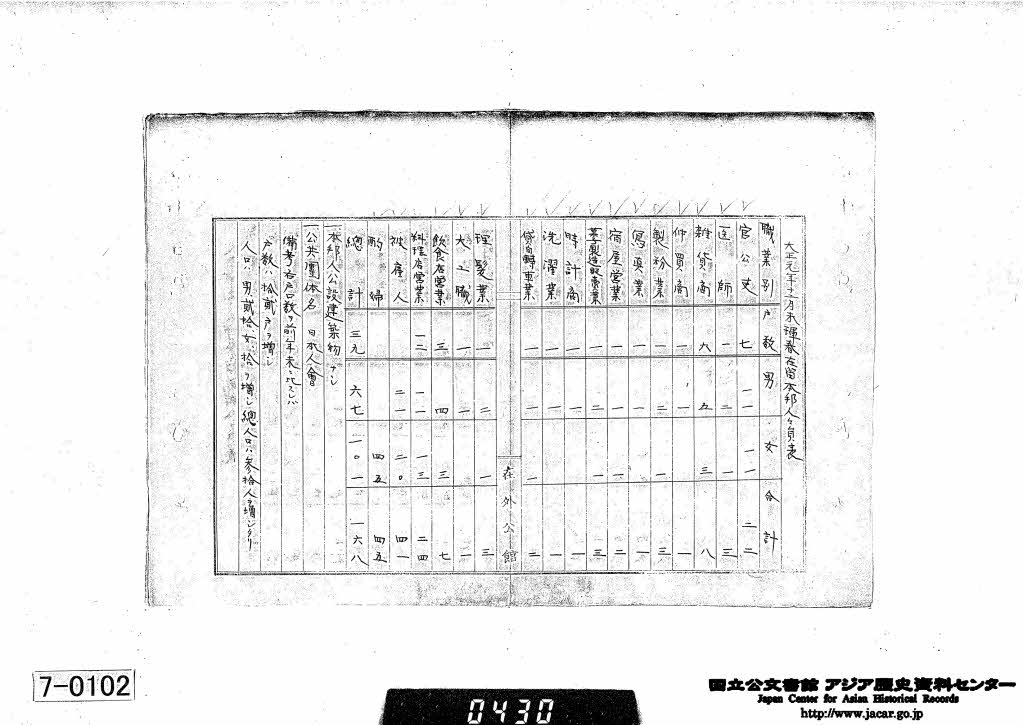 大正元年十二月末現在在留本邦人人員表
職業別 戸数 男 女 合計
官公吏 七 一一 一一 二二
医師 一 二 一 三
雑貨商 六 五 三 八
仲買商 一 一 一
製粉業 一 二 一 三
寫真業 一 一 一
宿屋営業 一 一 一 二
菓子製造販賣業 一 二 一 三
時計商 一 一 一
洗濯業 一 一 一
貸自轉車業 一 一 一 二
在外公館
理髪業 一 二 一 三
大工職 一 一 一
飲食店営業 三 四 三 七
料理店営業 一二 一一 一三 二四
被雇人 二一 二〇 四一
酌婦 四五 四五
總計 三九 六七 一〇一 一六八
本邦人公設建築物 ナシ
公共團体名 日本人會
備考 右戸口数ヲ前年末ニ比スレバ
戸数ハ拾貳戸ヲ増シ
人口ハ男貳拾、女拾ヲ増シ總人口ハ参拾人ヲ増シタリ
7-0102
0430
国立公文書館 アジア歴史資料センター
Japan Center for Asian Historical Records
http://www.jacar.go.jp